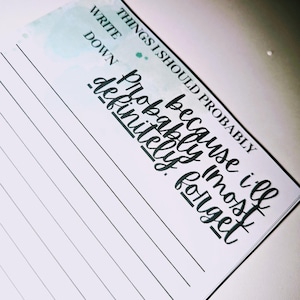 THINGS I SHOULD PROBABLY
WRITE
DOWN
because i'll
Probably /most
definitely forget